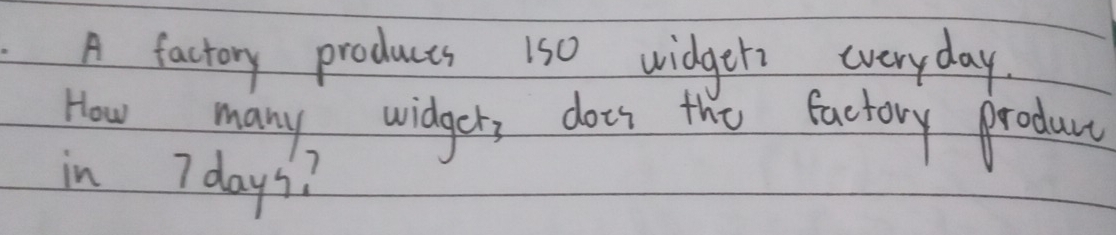 A factory produces 150 widgets everyday.
How many widgets does the factory produce
in 7 days?